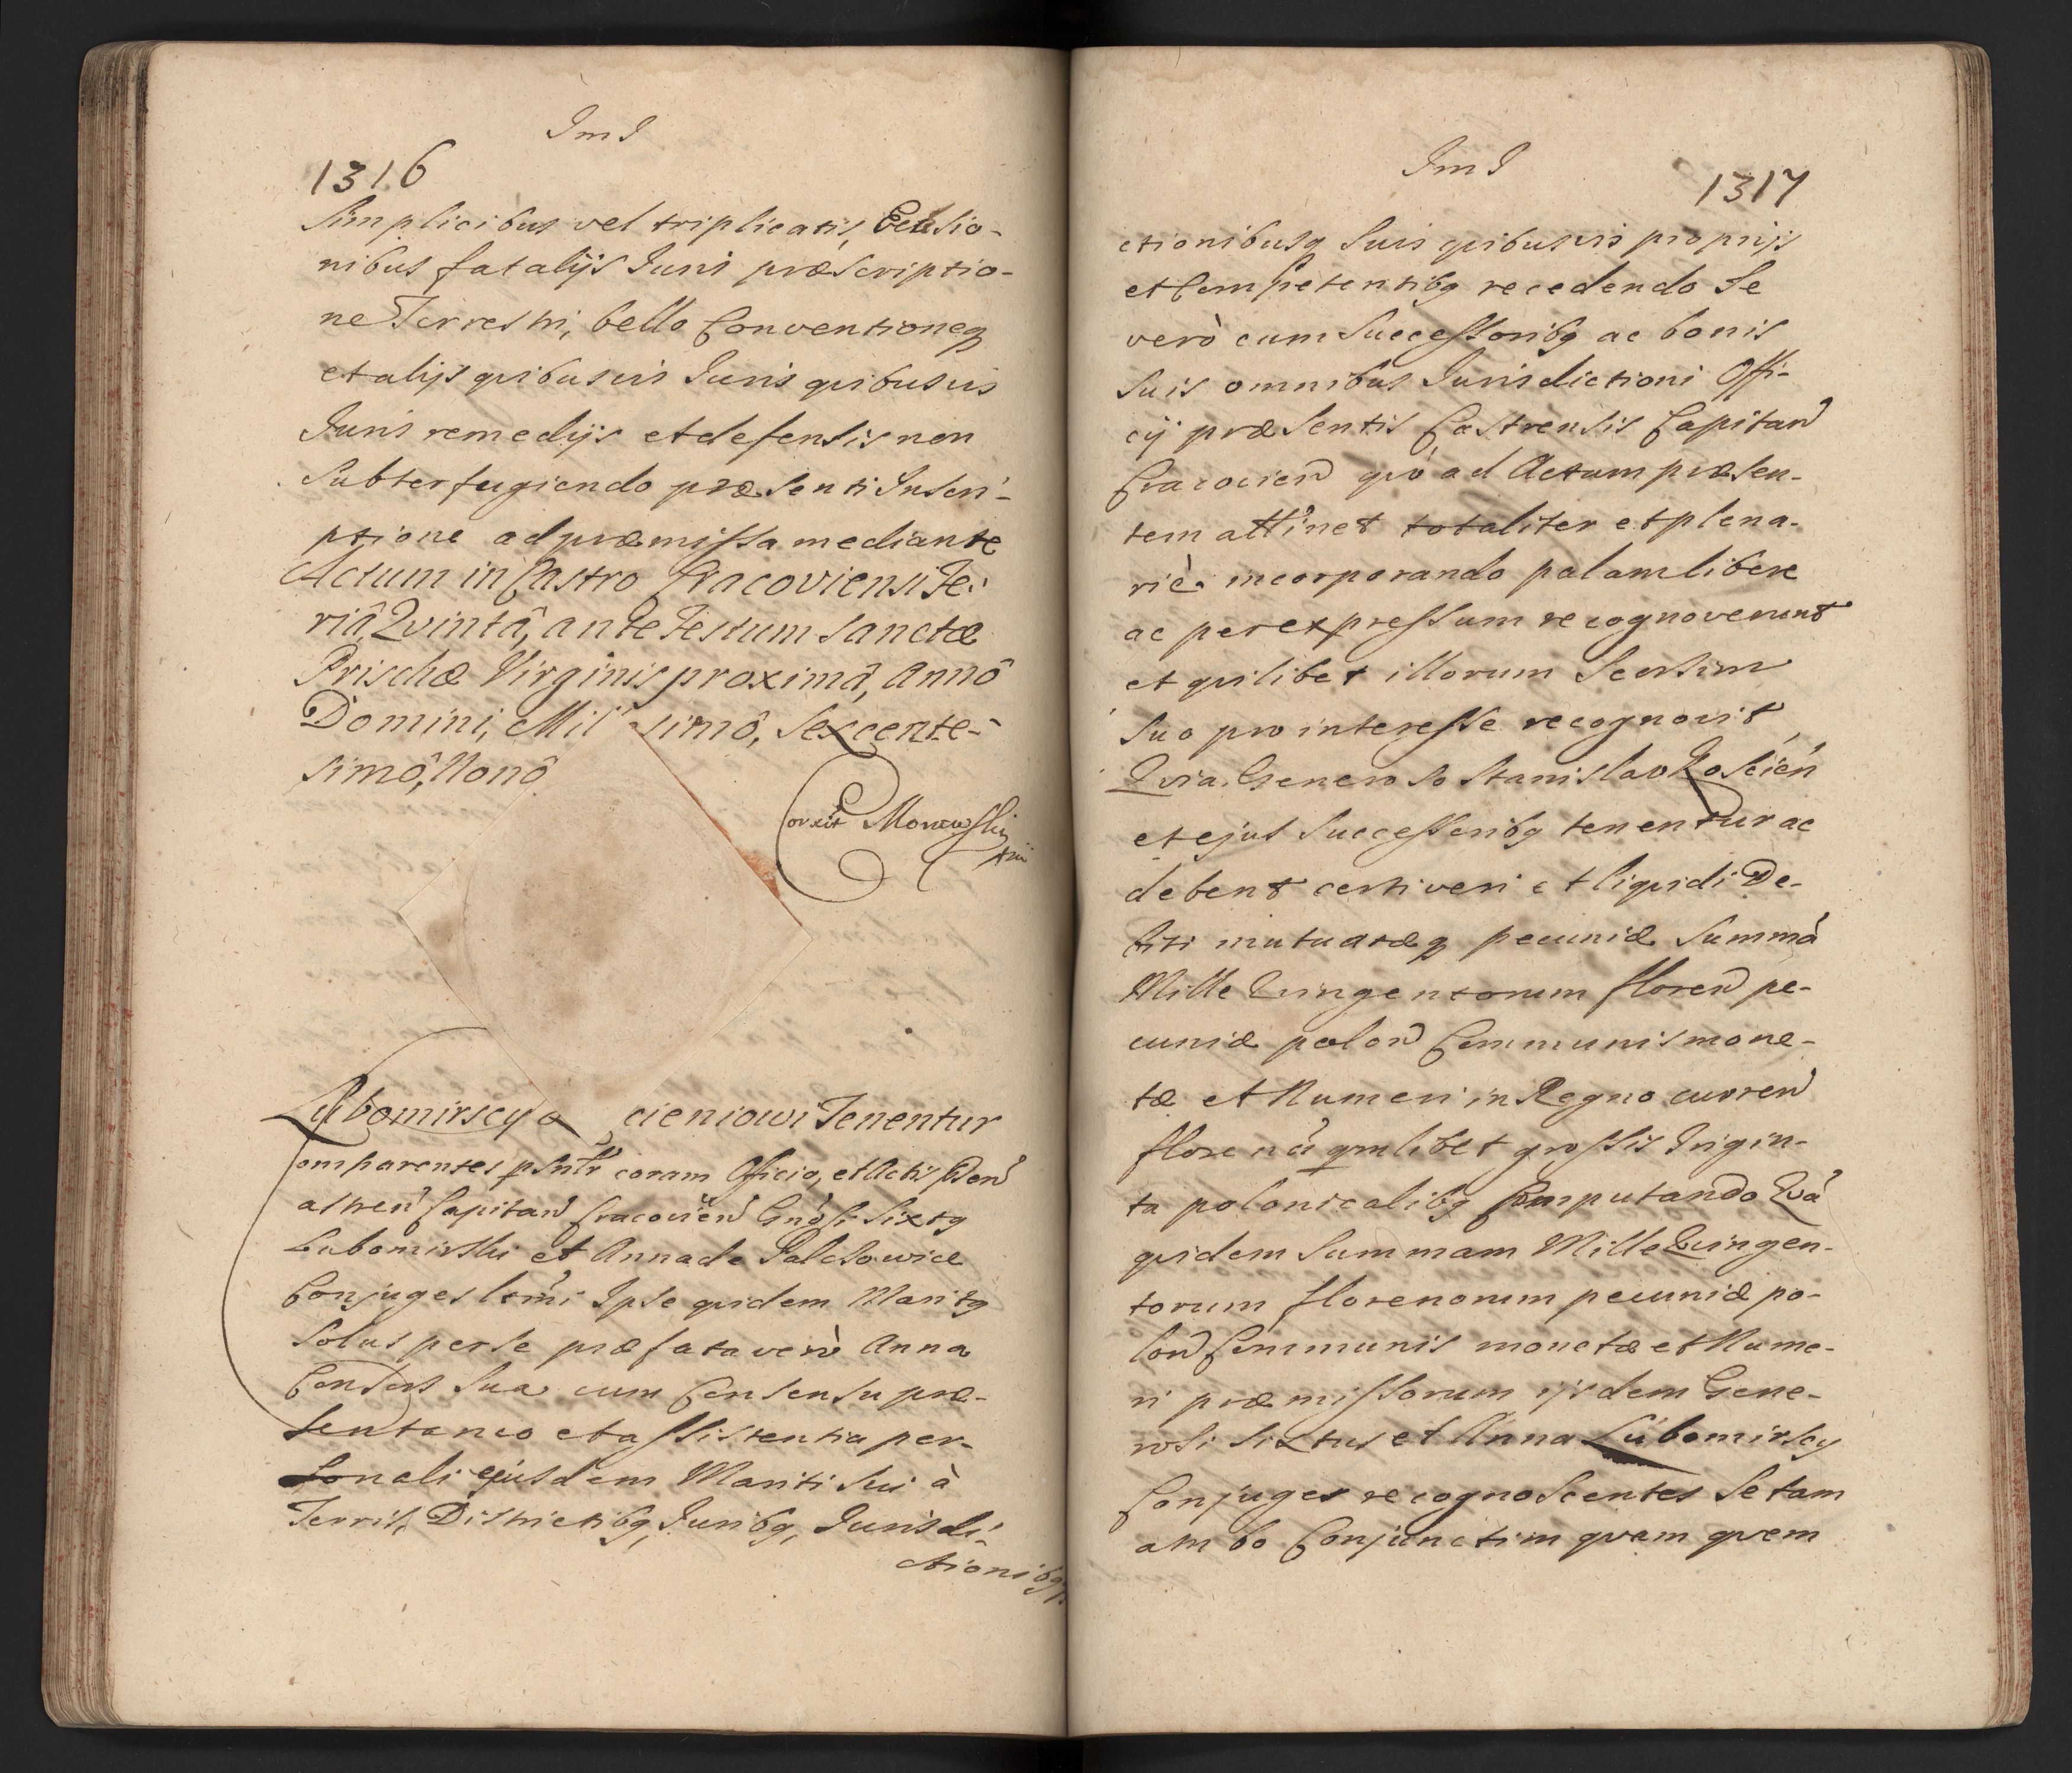 ImI
1316
Simplicibus vel triplicatis, Exclusio-
nibus fatalijs Juris præscriptio-
ne Terrestri, bello Conventioneq
et alijs quibusvis Juris quibusvis
Juris remedijs et defensis non
Subterfugiendo præsenti Inscri-
ptione ad præmissa mediante
Actum in Castro Cracoviensi Fe:
riâ, Qvintâ, ante Festum Sanctæ
Prischæ Virginis proximâ, Annô
Domini, Mil simô, Sexcente-
simô, Nonô
Correxit
Lubomirscy cieniowi Tenentur
Comparentes psntr coram Officio, et Actis psen
astren Capitan Cracovien Gnosi Sixtq
Lubomirski et Anna de Palczowice
Conjuges lrmi Ipse quidem Maritq
Solus per se præfata verò Anna
Consors Sua cum Consensu præ-
sentaneo et assistentia per-
sonali ejusdem Mariti sui à
Terris, Districtibq, Juribq, Jurisdi-
ctionibq
ImI
1317
ctionibusq Suis quibusvis proprijs
et Competentibq recedendo Se
verò cum Successoribq ac bonis
Suis omnibus Jurisdictioni Offi-
cij præsentis Castrensis Capitan
Cracovien quò ad Actum præsen-
tem attinet totaliter et plena-
riè incorporando palam libere
ac per expressum recognoverunt
et quilibet illorum Seorsim
Suo pro interesse recognovit,
Qvia Generoso Stanislao Koscien
et ejus Successoribq tenentur ac
debent certi veri et liqvidi De-
biti mutuatæq pecuniæ Summâ
Mille Quingentorum floren pe-
cuniæ polon Communis mone-
tæ et Numeri in Regno curren
florenũ qmlibet grossis trigin-
ta polonicalibq Computando Qvâ
quidem Summam Mille Quingen-
torum florenorum pecuniæ po-
lon Communis monetæ et Nume-
ri præmissorum ijsdem Gene-
rosi Sixtus et Anna Lubomirscy
Conjuges recognoscentes Se tam
ambo Conjunctim qvam qvem